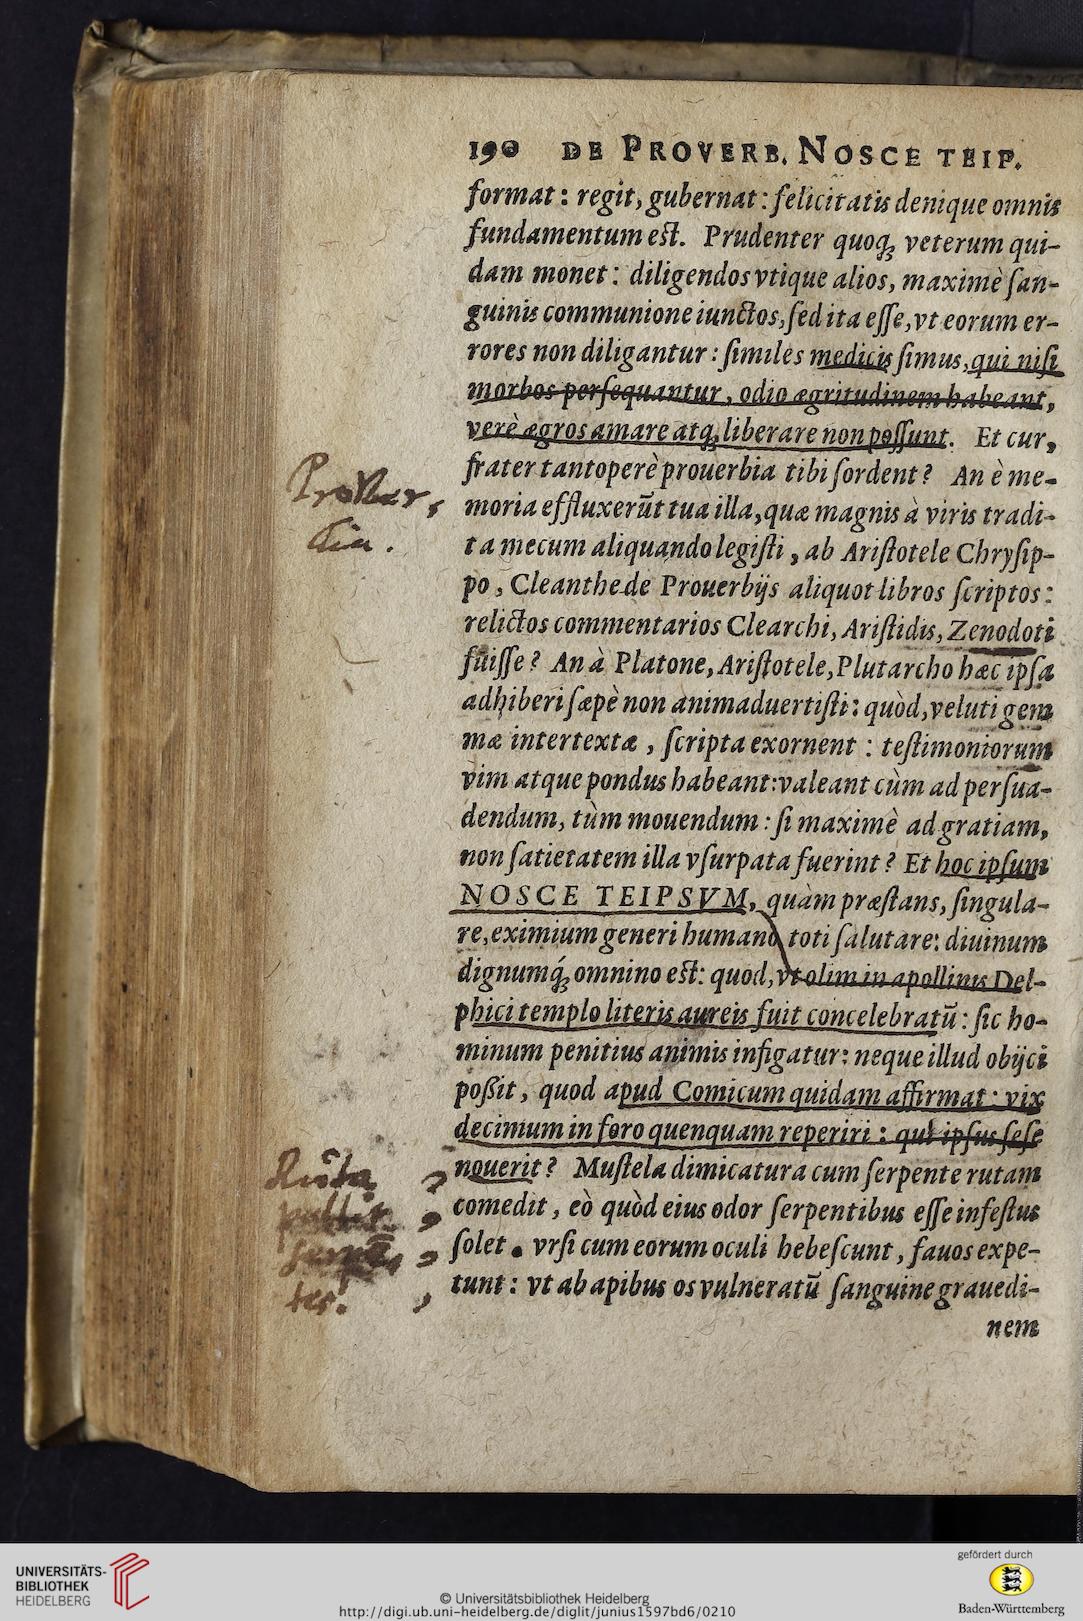 190 DE PROVERB. NOSCE TEIP.
format: regit, gubernat: felicitatis denique omnis
fundamentum est. Prudenter quoqꝫ veterum qui-
dam monet: diligendos vtique alios, maximè ſan-
guinis communione iunctos, ſed ita eſſe, vt eorum er-
rores non diligantur: ſimiles medicis ſimus, qui niſi
morbos perſequantur, odio ægritudinem habeant,
verè ægros amare atqꝫ liberare non poſſunt. Et cur,
frater tantoperè prouerbia tibi ſordent? An è me-
moria effluxerūt tua illa, quæ magnis à viris tradi-
ta mecum aliquando legiſti, ab Ariſtotele Chryſip-
po, Cleanthe de Prouerbijs aliquot libros ſcriptos:
relictos commentarios Clearchi, Ariſtidis, Zenodoti
fuiſſe? An à Platone, Ariſtotele, Plutarcho hæc ipſa
adhiberi ſæpè non animaduertiſti: quòd, veluti gem
mæ intertextæ, ſcripta exornent: teſtimoniorum
vim atque pondus habeant: valeant cùm ad perſua-
dendum, tùm mouendum: ſi maximè ad gratiam,
non ſatietatem illa vſurpata fuerint? Et hoc ipſum
NOSCE TEIPSVM, quàm præſtans, ſingula-
re, eximium generi humano toti ſalutare: diuinum
dignumq́ꝫ omnino est: quod, vt olim in apollinis Del-
phici templo literis aureis fuit concelebratū: ſic ho-
minum penitius animis infigatur: neque illud obijci
poßit, quod apud Comicum quidam affirmat: vix
decimum in foro quenquam reperiri: qui ipſus ſeſe
nouerit? Muſtela dimicatura cum ſerpente rutam
comedit, eò quòd eius odor ſerpentibus eſſe infeſtus
ſolet. vrſi cum eorum oculi hebeſcunt, fauos expe-
tunt: vt ab apibus os vulneratū ſanguine grauedi-
nem
Prouer,
bia.
Ruta
UNIVERSITÄTS-
BIBLIOTHEK
HEIDELBERG
© Universitätsbibliothek Heidelberg
http://digi.ub.uni-heidelberg.de/diglit/junius1597bd6/0210
gefördert durch
Baden-Württemberg